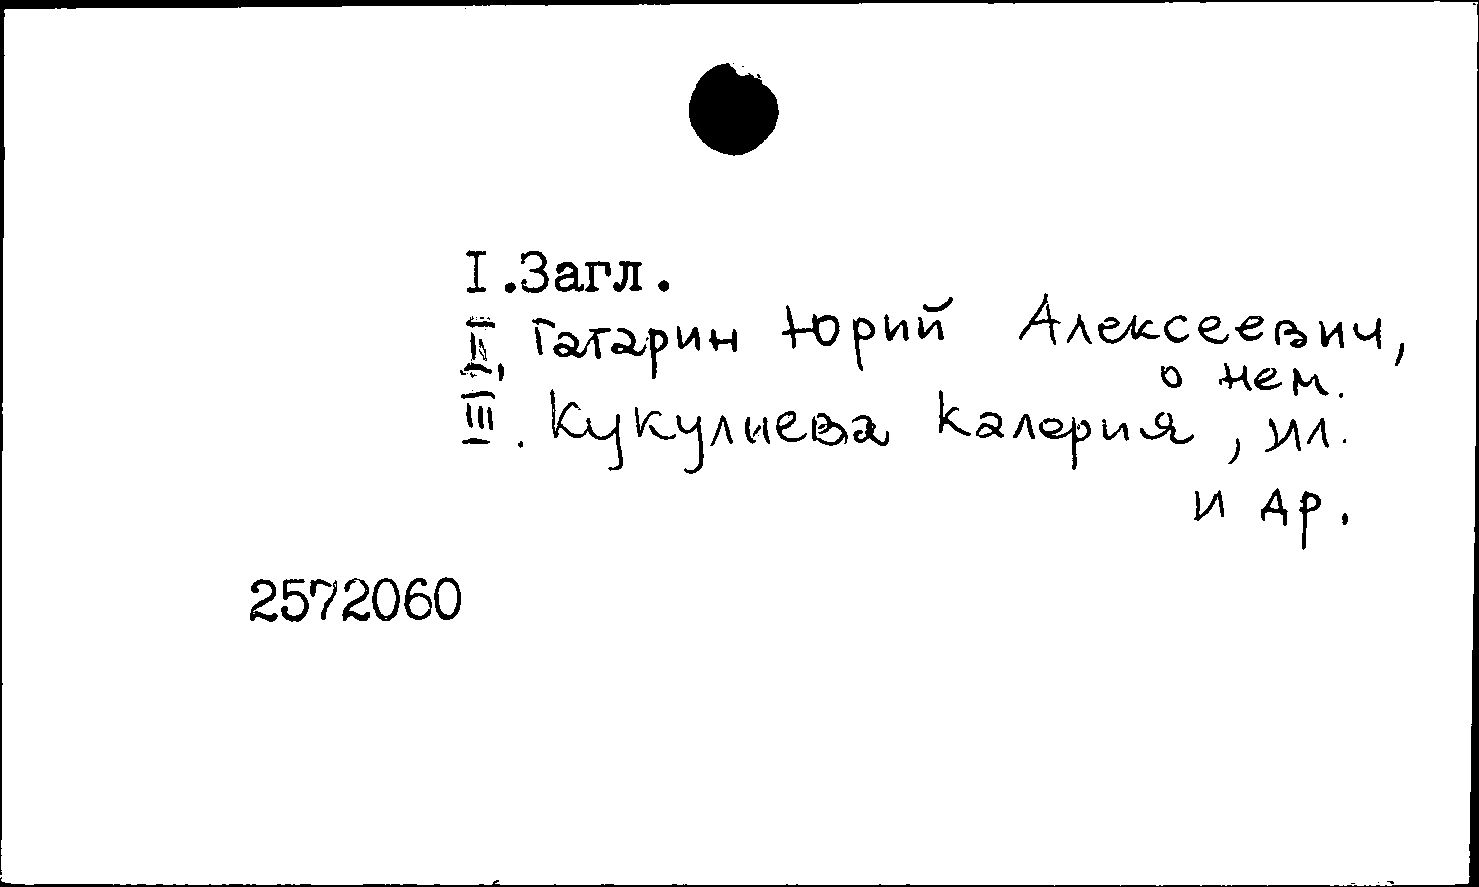 I.Загл.
II. Гагарин Юрий Алексеевич,
о нем.
III. Кукулиева Калерия, ил.
и др.
2572060